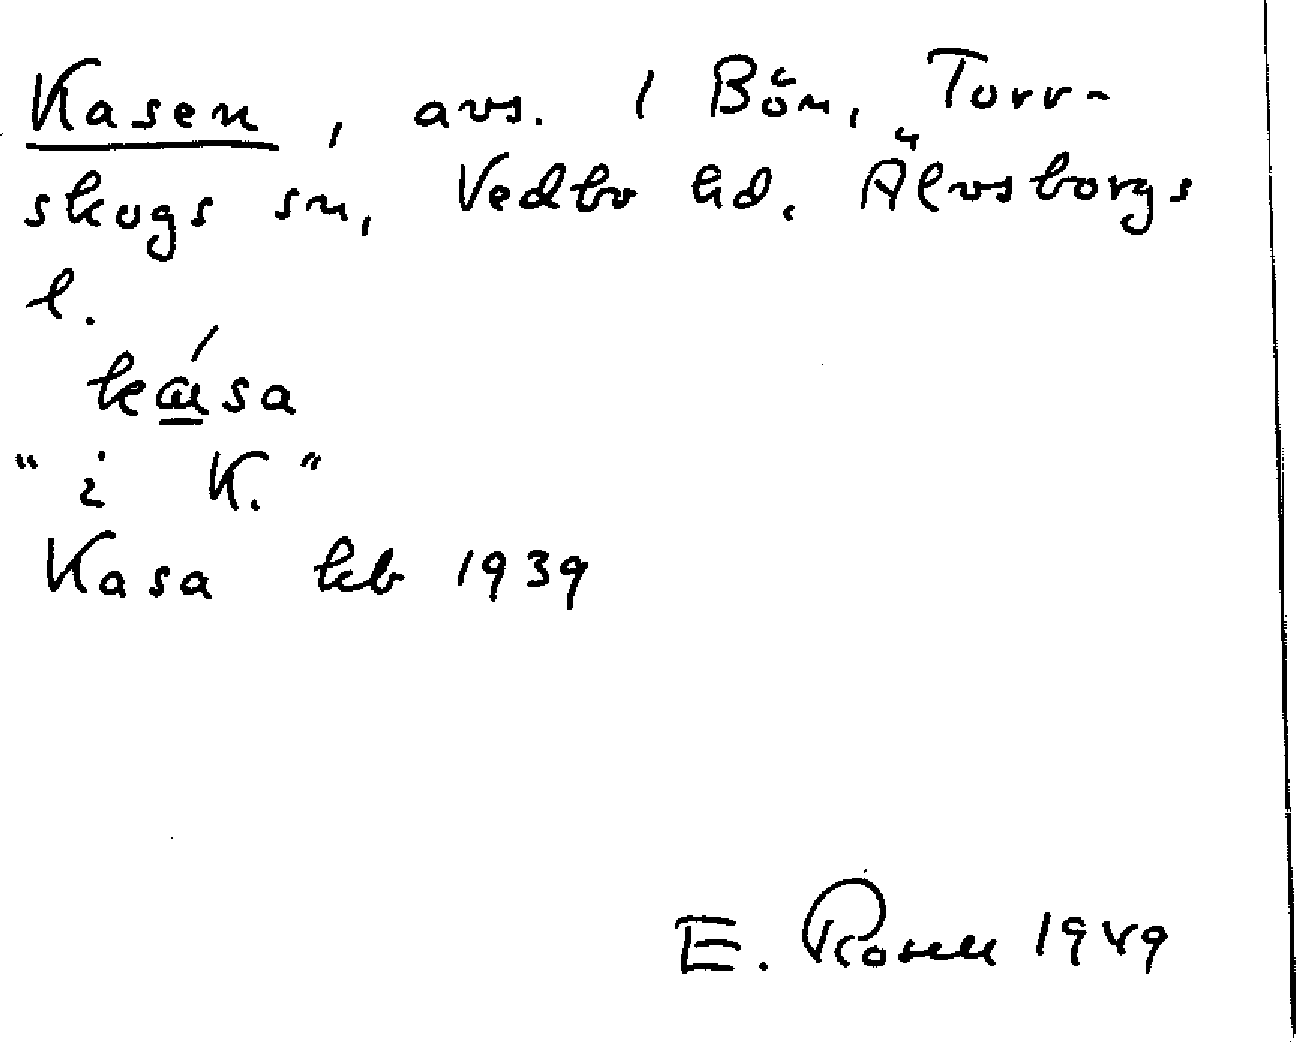 Kasen, avs. / Bön, Torr-
skogs sn, Vedbo hd. Älvsborgs
l.
"i K."
Kasa kb 1939
E. Rosell 1949